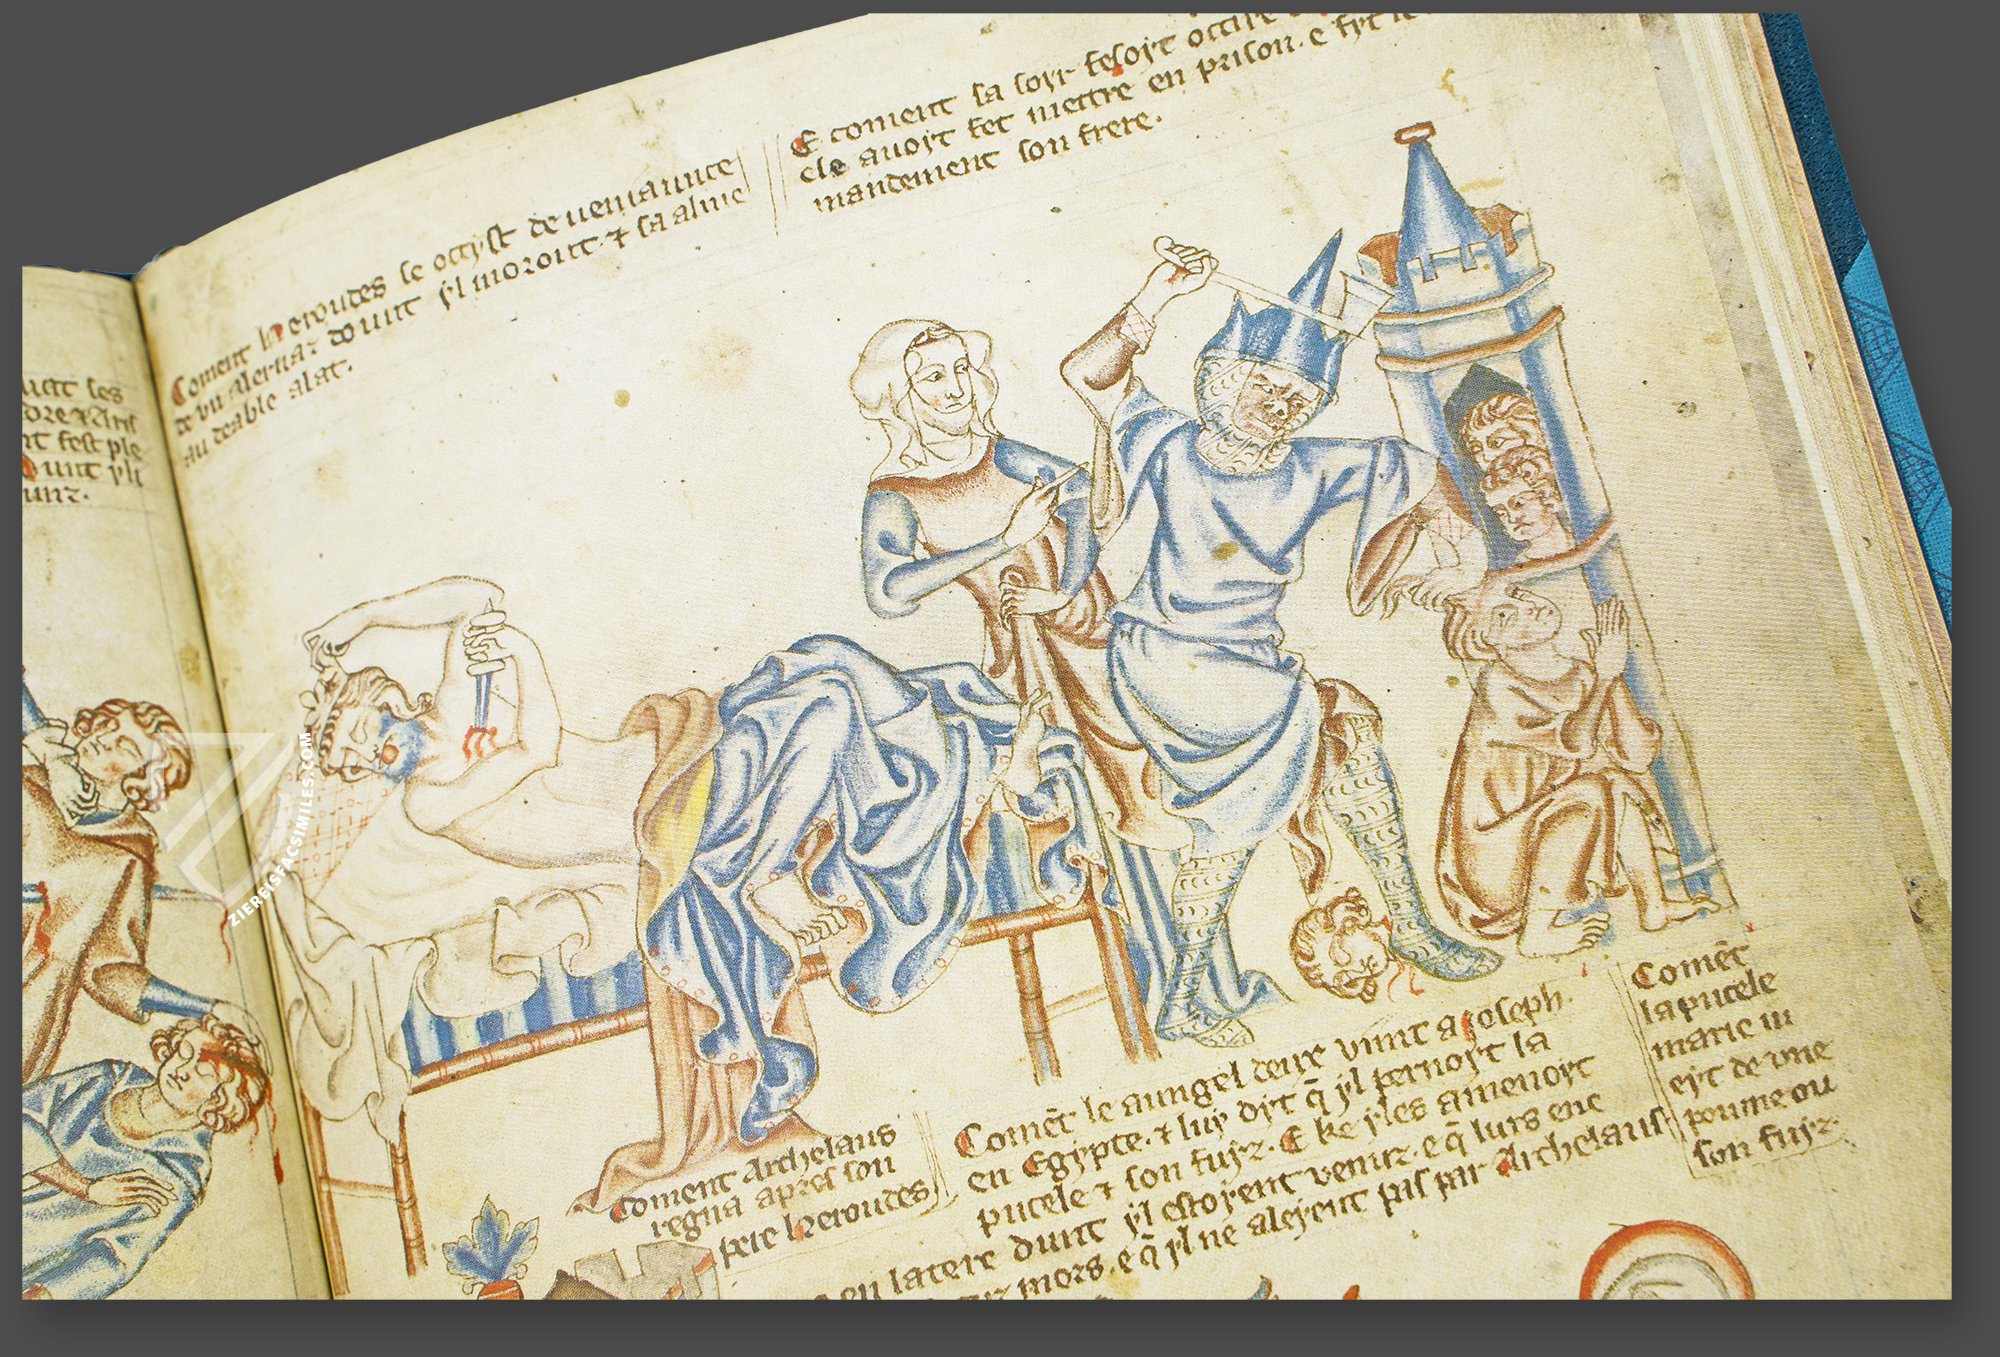 uict les
dore & Aris
nt fest ple
Dunt yli
unz.
Coment Heroudes se occyst de ueniaunce
de vn alernaz dount yl moroitt. & sa alme
au deable alat.
E coment sa soyr fesoyt occire
ele auoyt fet mettre en prison. e fyt
mandement son frere.
Coment Archelaus
regna apres son
pere Heroudes
Comēt le aungel deux vint a Joseph.
en Egypte. & luy dyt q̄ yl pernoyt la
pucele & son fuyz. E ke yles amenoyt
en la tere dunt yl estoyent venuz. e q̄ lurs ene
mors. e q̄ yl ne aleyent pas par Archelaus
Comēt
la pucele
marie iu
eyt de vne
poume ou
son fuyz.
ZIEREISFACSIMILES.COM